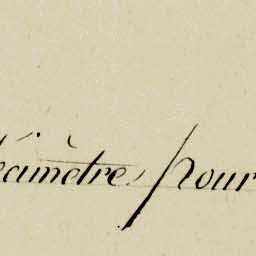 diamètre, pour